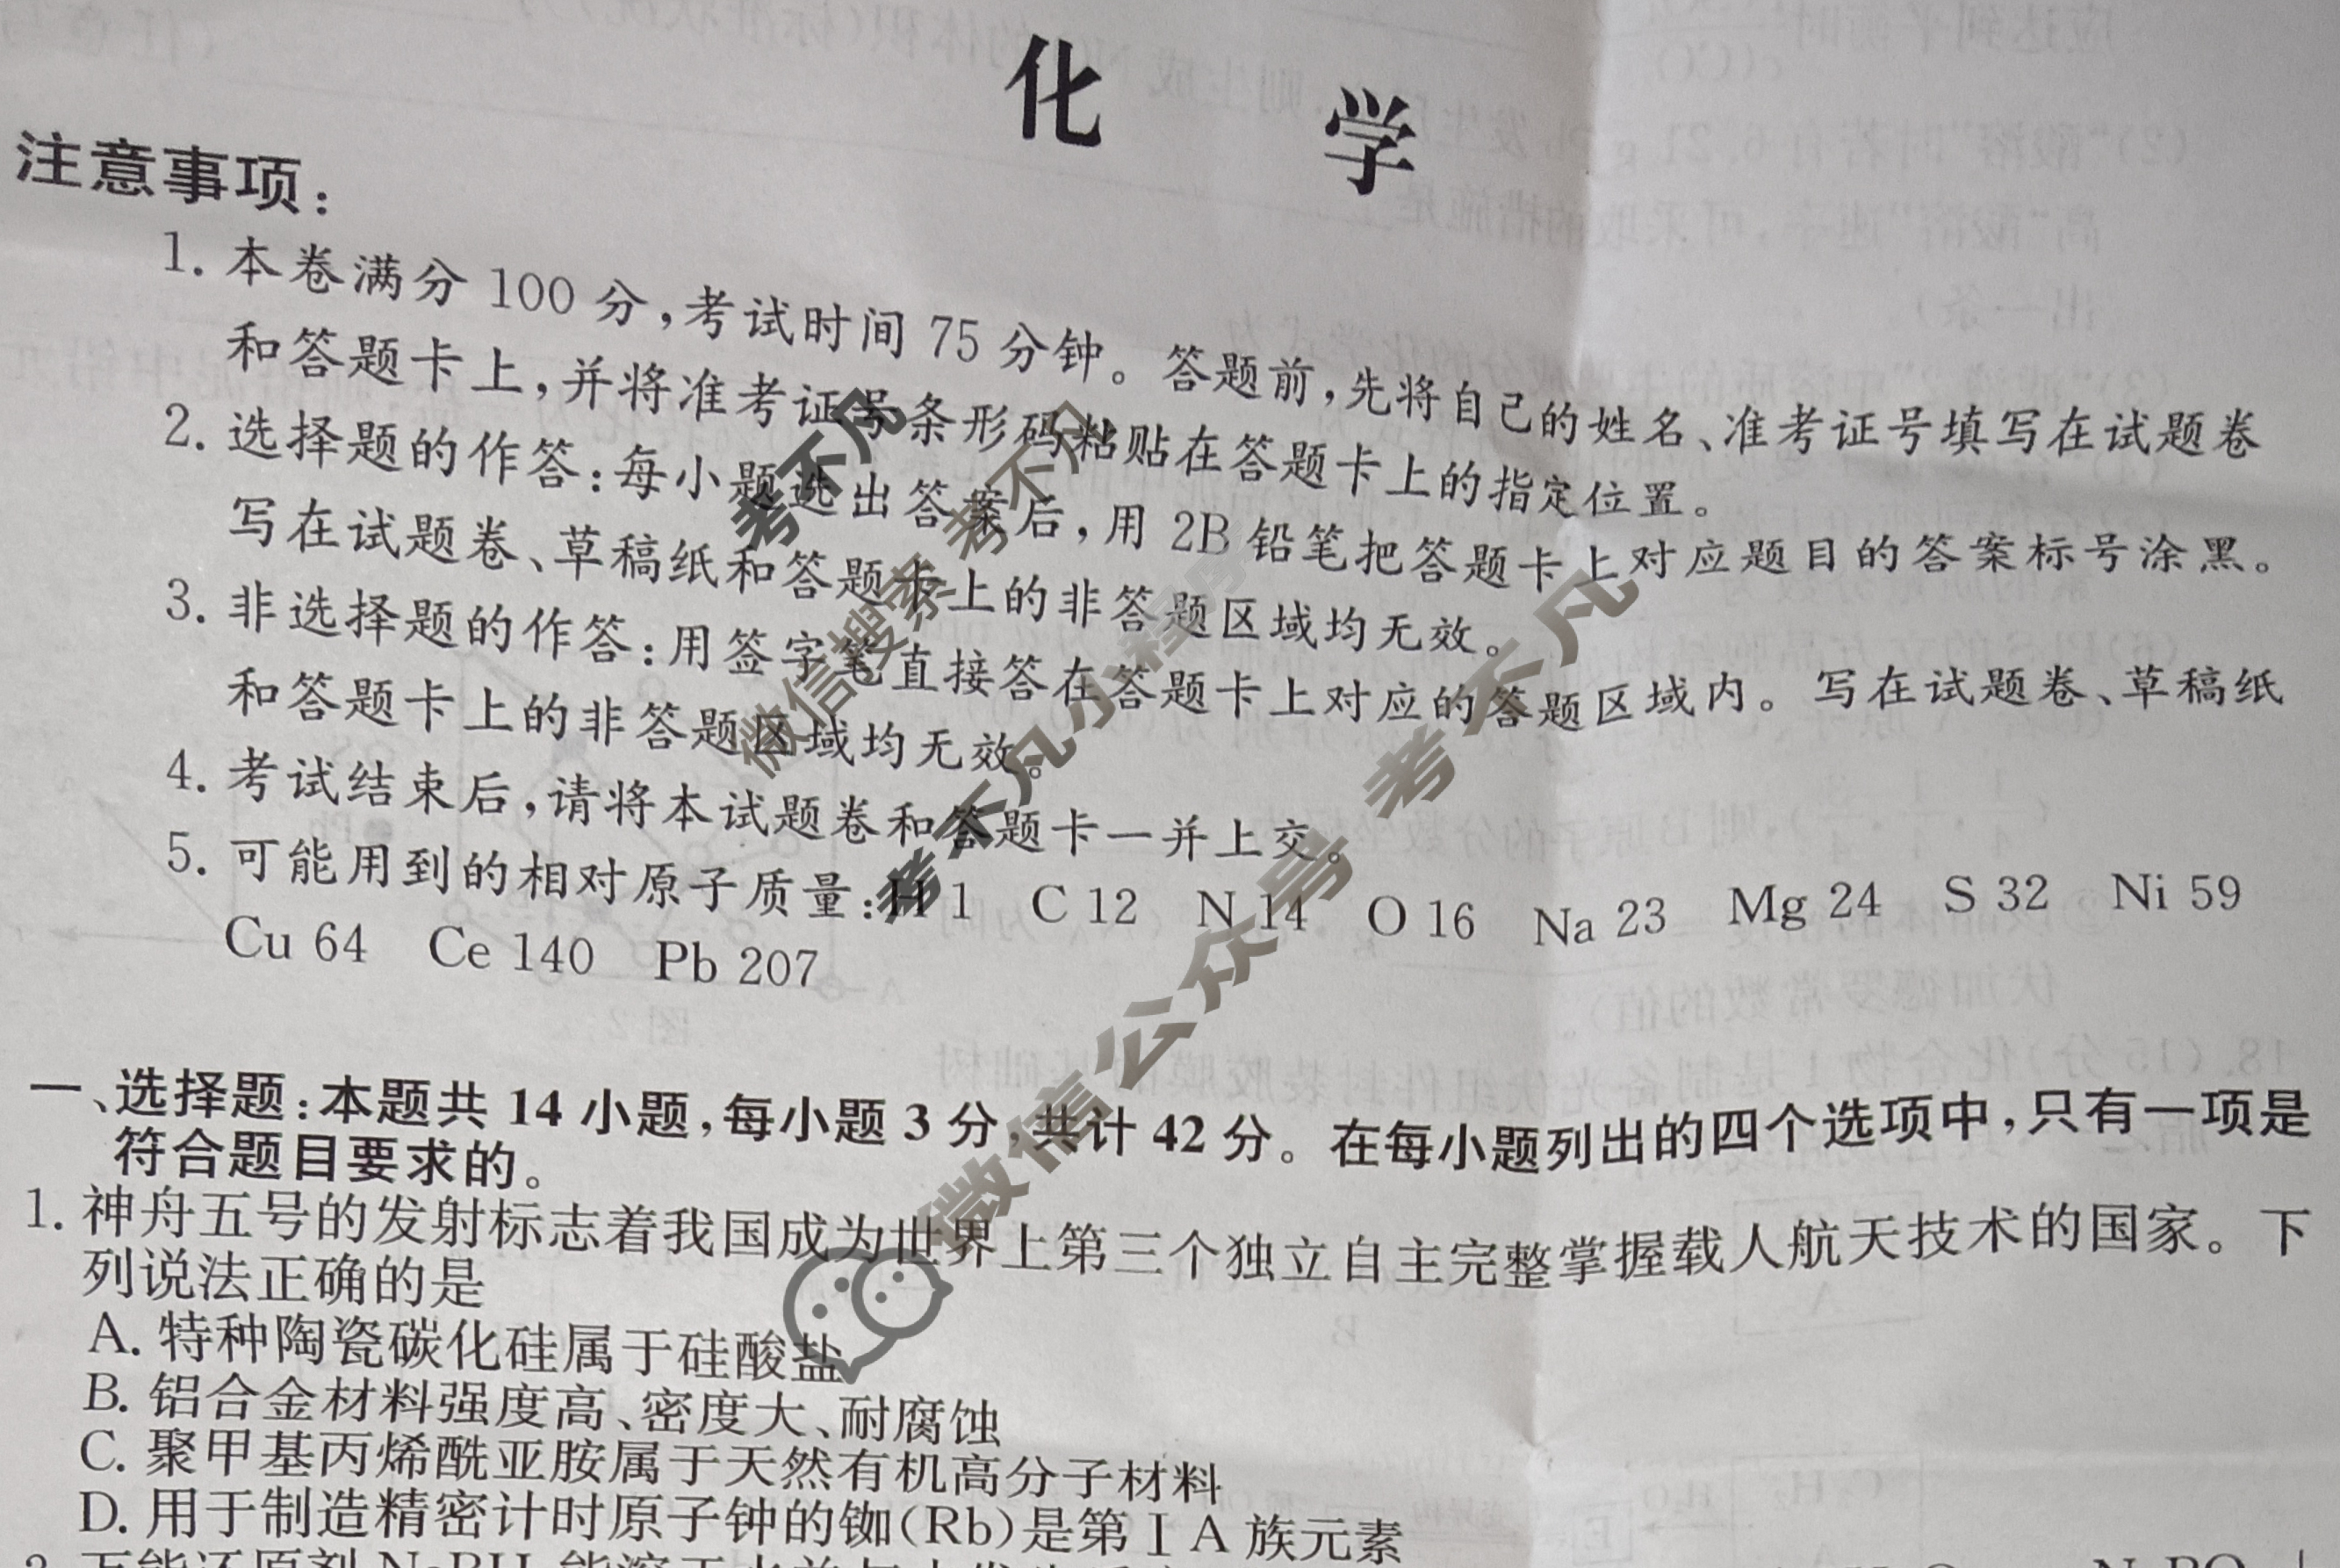 化 学
注意事项:
1. 本卷满分 100 分,考试时间 75 分钟。答题前,先将自己的姓名、准考证号填写在试题卷
和答题卡上,并将准考证号条形码粘贴在答题卡上的指定位置。
2. 选择题的作答:每小题选出答案后,用 2B 铅笔把答题卡上对应题目的答案标号涂黑。
写在试题卷、草稿纸和答题卡上的非答题区域均无效。
3. 非选择题的作答:用签字笔直接答在答题卡上对应的答题区域内。写在试题卷、草稿纸
和答题卡上的非答题区域均无效。
4. 考试结束后,请将本试题卷和答题卡一并上交。
5. 可能用到的相对原子质量:H 1 C 12 N 14 O 16 Na 23 Mg 24 S 32 Ni 59
Cu 64 Ce 140 Pb 207
一、选择题:本题共 14 小题,每小题 3 分,共计 42 分。在每小题列出的四个选项中,只有一项是
符合题目要求的。
1. 神舟五号的发射标志着我国成为世界上第三个独立自主完整掌握载人航天技术的国家。下
列说法正确的是
A. 特种陶瓷碳化硅属于硅酸盐
B. 铝合金材料强度高、密度大、耐腐蚀
C. 聚甲基丙烯酰亚胺属于天然有机高分子材料
D. 用于制造精密计时原子钟的铷(Rb)是第ⅠA 族元素
考不凡
微信搜索 考不凡
考不凡小程序
微信公众号 考不凡